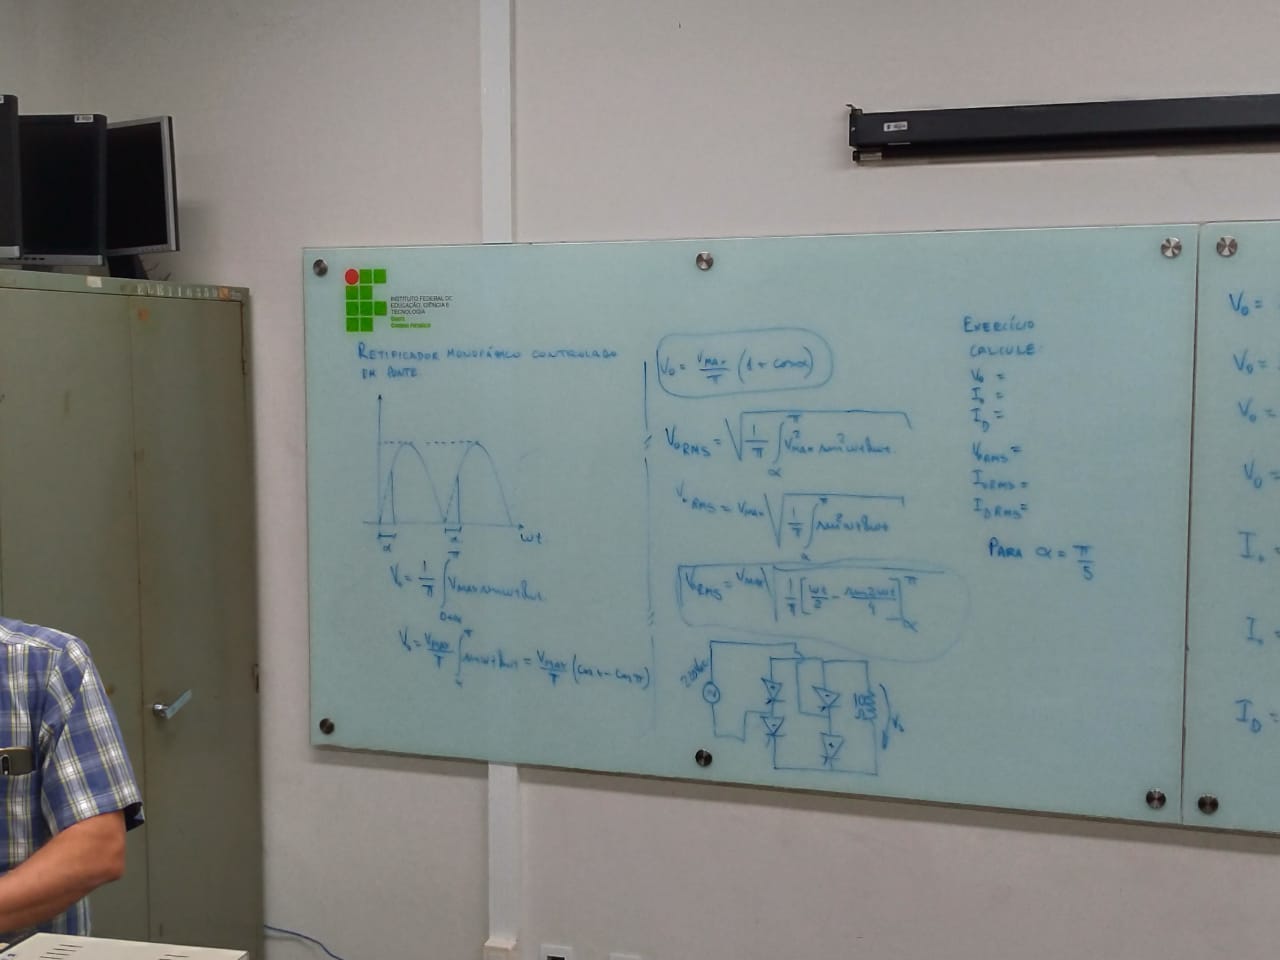 INSTITUTO FEDERAL DE
EDUCAÇÃO, CIÊNCIA E
TECNOLOGIA
RETIFICADOR MONOFÁSICO CONTROLADO
EM PONTE
α
α
ωt
V₀ = 1/π ∫ Vmax sen ωt dωt
0+α
π
V₀ = Vmax/π ∫ sen ωt dωt = Vmax/π (cos α - cos π)
V₀ = Vmax/π (1 + cos α)
V₀ RMS = √ 1/π ∫ V²max sen² ωt dωt
π
α
V₀ RMS = Vmax √ 1/π ∫ sen² ωt dωt
π
α
V₀RMS = Vmax √ 1/π [ωt/2 - sen 2ωt/4]
π
α
V₀
EXERCÍCIO
CALCULE:
V₀ =
I₀ =
I_D =
V₀RMS =
I₀RMS =
I_D RMS =
PARA α = π/5
V₀ =
V₀ =
V₀ =
V₀ =
I₀ =
I₀ =
I_D =